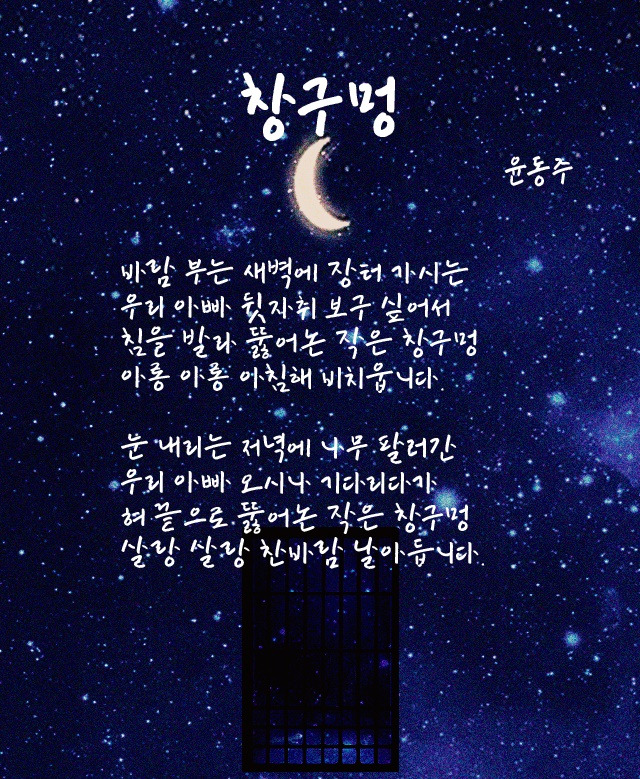 창구멍
윤동주
바람 부는 새벽에 장터 가시는
우리 아빠 뒷자취 보구 싶어서
침을 발라 뚫어논 작은 창구멍
아롱 아롱 아침해 비치웁니다.
눈 내리는 저녁에 나무 팔러간
우리 아빠 오시나 기다리다가
혀 끝으로 뚫어논 작은 창구멍
살랑 쌀랑 찬바람 날아듭니다.